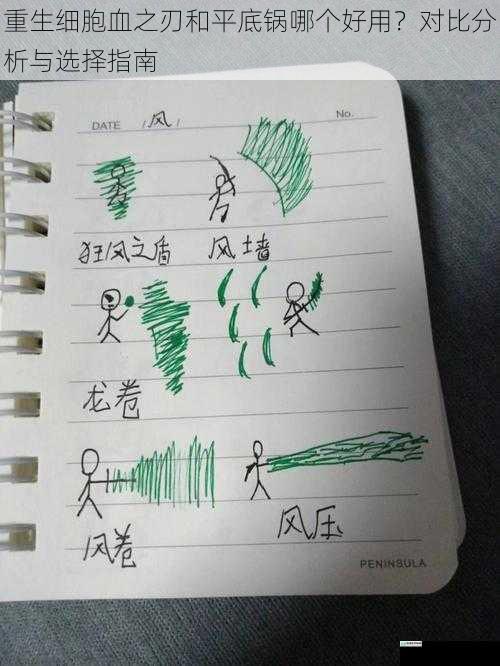 重生细胞血之刃和平底锅哪个好用？对比分
析与选择指南
DATE / 风 /
No.
狂风之盾 风墙
龙卷
风卷
风压
PENINSULA